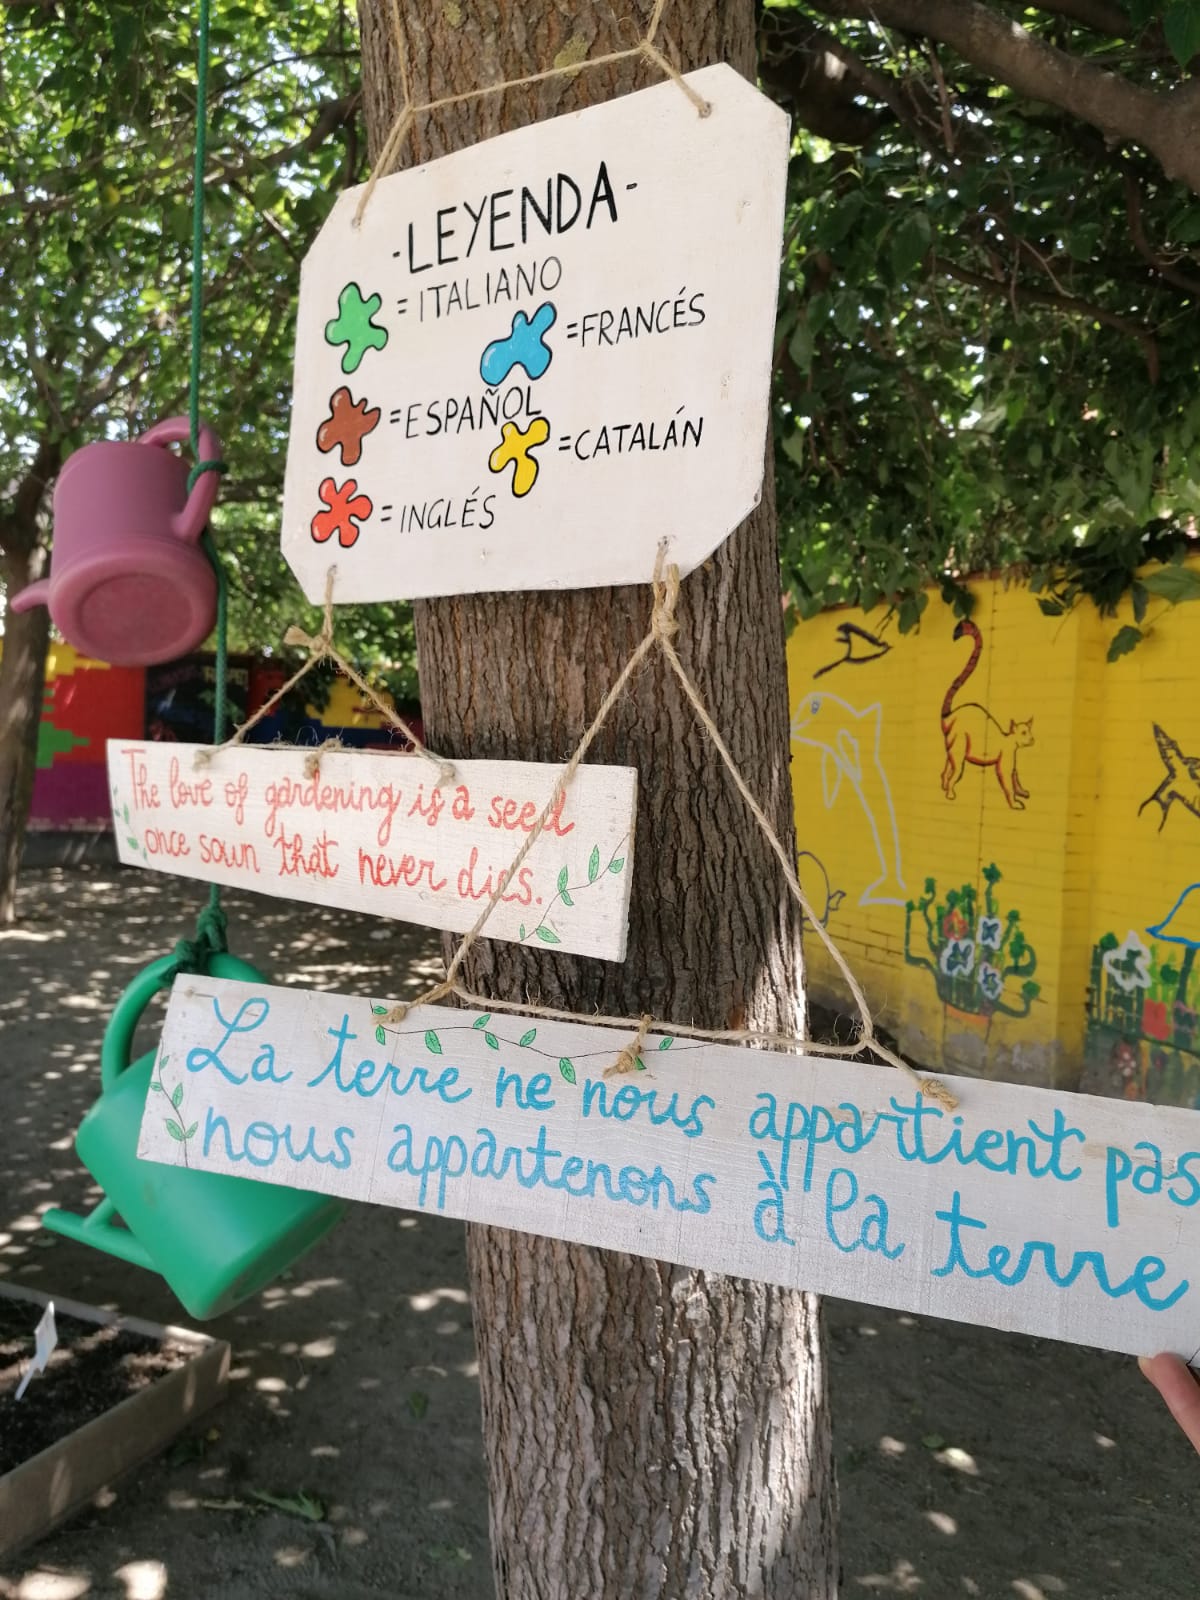 -LEYENDA-
= ITALIANO
=FRANCÉS
=ESPAÑOL
=CATALÁN
= INGLÉS
The love of gardening is a seed
once sown that never dies.
La terre ne nous appartient pas
nous appartenons à la terre